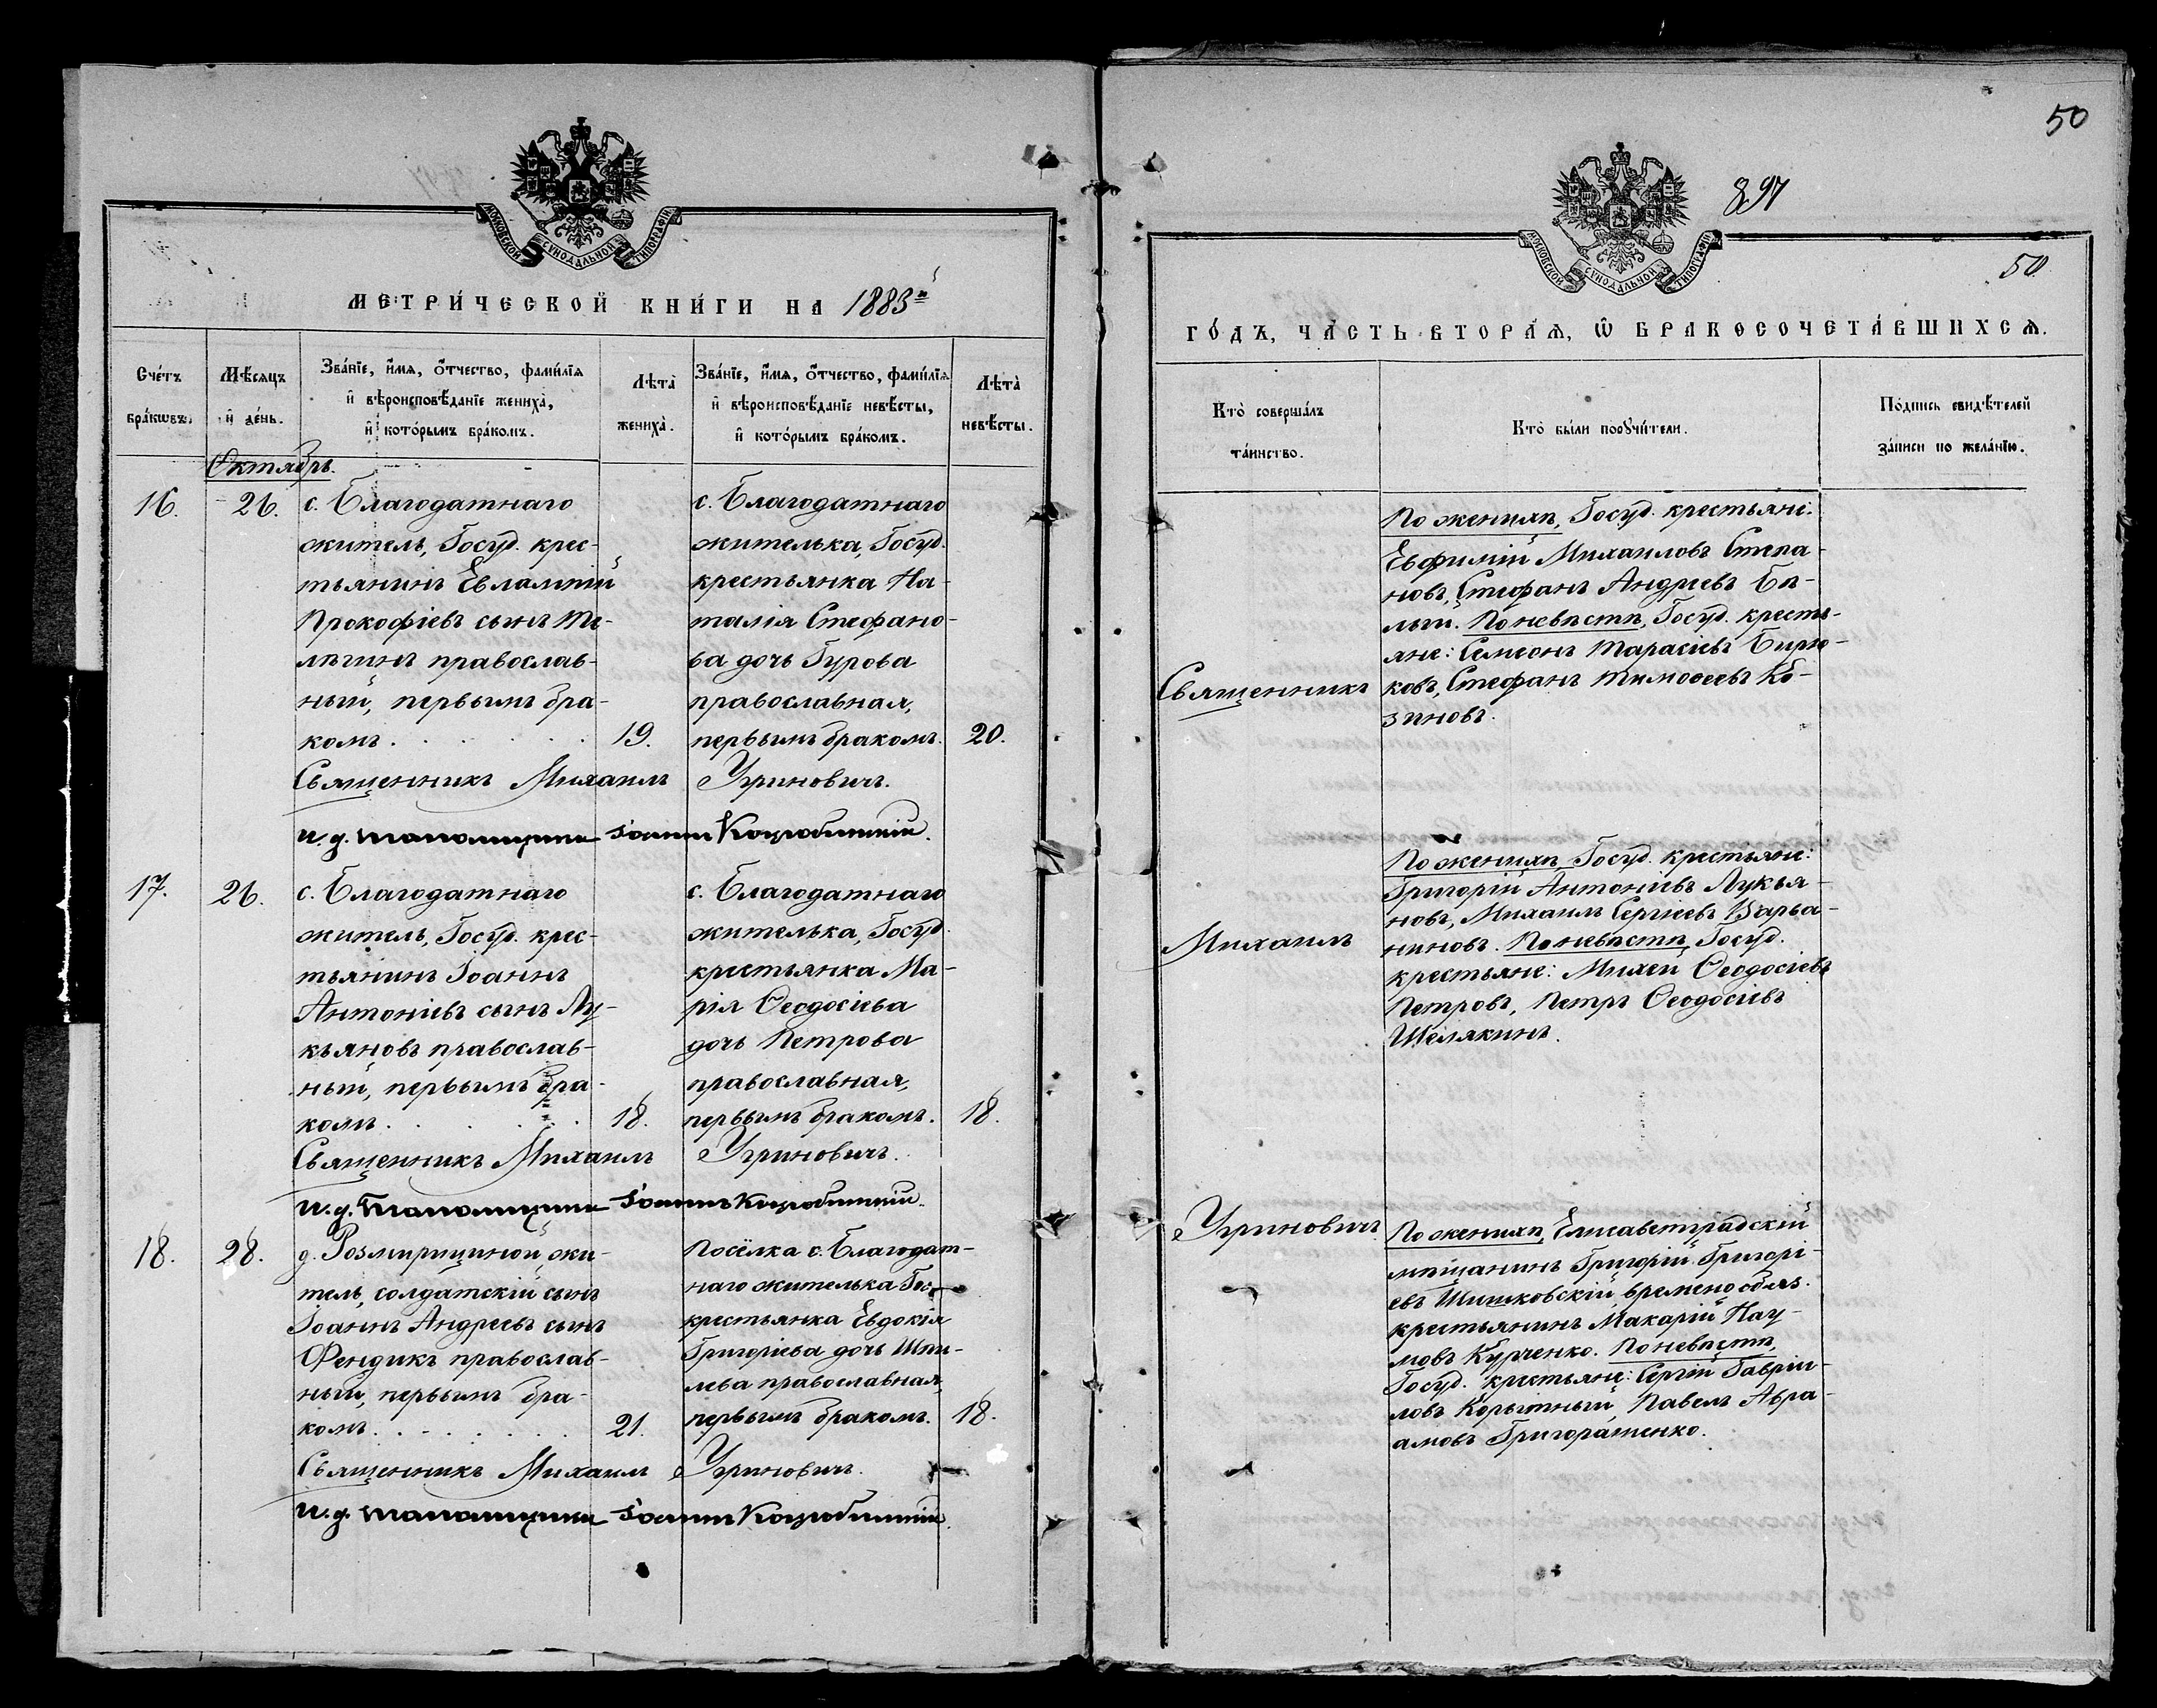 50
897
50
МОСКОВСКОЙ СѴНОДАЛЬНОЙ ТИПОГРАФІИ
МЕТРИ́ЧЕСКОЙ КНИ́ГИ НА 1883й
Сче́тъ бра́кѡвъ.
Мѣ́сяцъ и҆ де́нь.
Зва́нїе, и҆́мя, ѻ҆́тчество, фами́лїя
и҆ вѣроисповѣ́данїе жениха̀,
и҆ кото́рымъ бра́комъ.
Лѣта̀ жениха̀.
Зва́нїе, и҆́мя, ѻ҆́тчество, фами́лїя
и҆ вѣроисповѣ́данїе невѣ́сты,
и҆ кото́рымъ бра́комъ.
Лѣта̀ невѣ́сты.
Октябрь.
16.
26.
с. Благодатнаго
житель, Госуд. крес-
тьянинъ Евлампій
Прокофіевъ сынъ
православ-
ный, первымъ бра-
комъ
19.
с. Благодатнаго
жителька, Госуд.
крестьянка На-
талія Стефано-
ва дочь Гурова
православная,
первымъ бракомъ.
20.
Священникъ Михаилъ Угриновичъ.
и. д. Іоаннъ
17.
26.
с. Благодатнаго
житель, Госуд. крес-
тьянинъ Іоаннъ
Антоніевъ сынъ Лу-
кьяновъ православ-
ный, первымъ бра-
комъ
18.
с. Благодатнаго
жителька, Госуд.
крестьянка Ма-
рія Ѳеодосіева
дочь Петрова
православная,
первымъ бракомъ.
18.
Священникъ Михаилъ Угриновичъ.
и. д. Іоаннъ
18.
28.
д. жи-
тель, солдатскій сынъ
Іоаннъ Андреевъ сынъ
Фендикъ православ-
ный, первымъ бра-
комъ
21.
Посёлка с. Благодат-
наго жителька Гос.
крестьянка Евдокія
Григоріева дочь Шпи-
лева православная,
первымъ бракомъ.
18.
Священникъ Михаилъ Угриновичъ.
и. д. Іоаннъ
МОСКОВСКОЙ СѴНОДАЛЬНОЙ ТИПОГРАФІИ
ГО́ДЪ, ЧА́СТЬ ВТОРА́Я, Ѡ҆ БРАКОСОЧЕТА́ВШИХСЯ.
Кто̀ соверша́лъ
та́инство.
Кто̀ бы́ли порꙋчи́тели.
По́дпись свидѣ́телей
за́писи по жела́нїю.
Священникъ
Михаилъ
Угриновичъ
По женихѣ, Госуд. крестьяне:
Евфимій Михаиловъ Степа-
новъ, Стефанъ Андреевъ Бѣ-
лый. По невѣстѣ, Госуд. кресть-
яне: Семеонъ Тарасіевъ Бирю-
ковъ, Стефанъ Тимоѳеевъ Ко-
зиновъ.
По женихѣ Госуд. крестьяне:
Григорій Антоніевъ Лукья-
новъ, Михаилъ Сергіевъ Варва-
ниновъ. По невѣстѣ, Госуд.
крестьяне: Михей Ѳеодосіевъ
Петровъ, Петръ Ѳеодосіевъ
Шелякинъ.
По женихѣ, Елисаветградскій
мѣщанинъ Григорій Григорі-
евъ Шишковскій, временообяз.
крестьянинъ Макарій Нау-
мовъ Курченко. По невѣстѣ,
Госуд. крестьяне: Сергій Гавріи-
ловъ Корытный, Павелъ Авра-
амовъ Григорашенко.